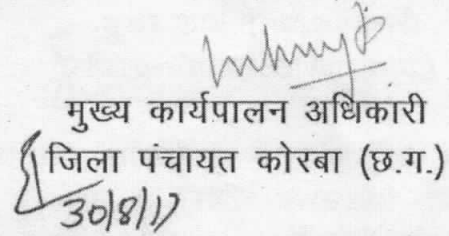 मुख्य कार्यपालन अधिकारी
जिला पंचायत कोरबा (छ.ग.)
30/8/17